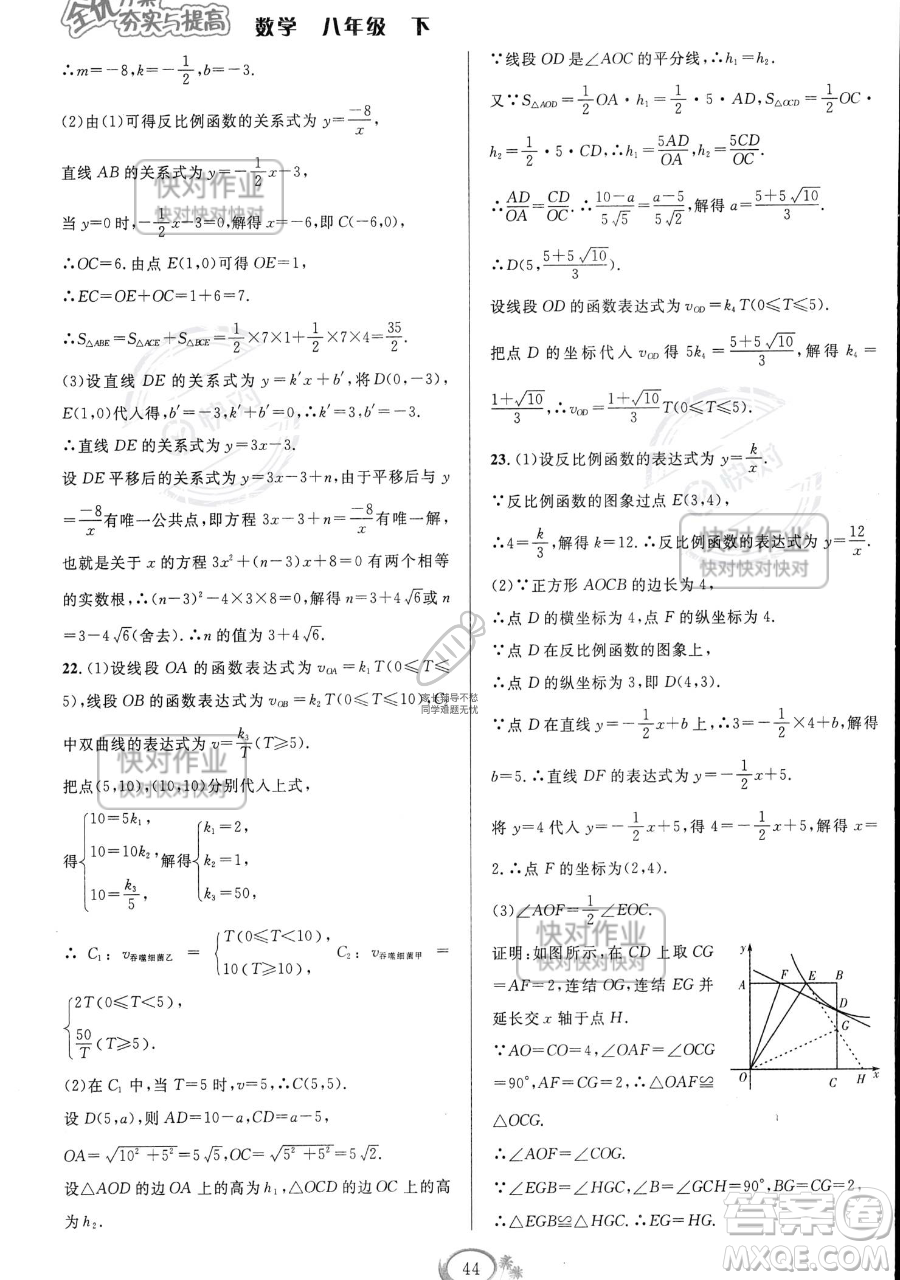 全优方案
夯实与提高 数学 八年级 下
∴m=-8,k=-1/2,b=-3.
(2)由(1)可得反比例函数的关系式为 y=-8/x,
直线 AB 的关系式为 y=-1/2x-3,
当 y=0 时,-1/2x-3=0,解得 x=-6,即 C(-6,0),
∴OC=6.由点 E(1,0)可得 OE=1,
∴EC=OE+OC=1+6=7.
∴S△ABE=S△ACE+S△BCE=1/2×7×1+1/2×7×4=35/2.
(3)设直线 DE 的关系式为 y=k′x+b′,将 D(0,-3),
E(1,0)代人得,b′=-3,k′+b′=0,∴k′=3.
∴直线 DE 的关系式为 y=3x-3.
设 DE 平移后的关系式为 y=3x+n,由于平移后与 y
=-8/x有唯一公共点,即方程 3x+n=-8/x有唯一解,
也就是关于 x 的方程 3x²+(n-3)x+8=0 有两个相等
的实数根,∴(n-3)²-4×3×8=0,解得 n=3+4√6或 n
=3-4√6(舍去).∴n 的值为 3+4√6.
22. (1)设线段 OA 的函数表达式为 vOA=k₁T(0≤T≤
5),线段 OB 的函数表达式为 vOB=k₂T(0≤T≤10),C
中双曲线的表达式为 v=k₃/T(T≥5).
把点(5,10),(10,10)分别代人上式,
得{10=5k₁, 10=10k₂, 10=k₃/5, 解得{k₁=2, k₂=1, k₃=50,
∴ C₁:v吞噬细菌乙 = {T(0≤T<10), 10(T≥10), C₂:v吞噬细菌甲 =
{2T(0≤T<5), 50/T(T≥5).
(2)在 C₁ 中,当 T=5 时,v=5,∴C(5,5).
设 D(5,a),则 AD=10-a,CD=a-5,
OA=√10²+5²=5√5,OC=√5²+5²=5√2.
设△AOD 的边 OA 上的高为 h₁,△OCD 的边 OC 上的高
为 h₂.
∵线段 OD 是∠AOC 的平分线,∴h₁=h₂.
又∵S△AOD=1/2OA·h₁=1/2·5·AD,S△OCD=1/2OC·
h₂=1/2·5·CD,∴h₁=5AD/OA,h₂=5CD/OC.
∴AD/OA=CD/OC.∴10-a/5√5=a-5/5√2,解得 a=5+5√10/3.
∴D(5,5+5√10/3).
设线段 OD 的函数表达式为 vOD=k₄T(0≤T≤5).
把点 D 的坐标代人 vOD 得 5k₄=5+5√10/3,解得 k₄=
1+√10/3,∴vOD=1+√10/3T(0≤T≤5).
23. (1)设反比例函数的表达式为 y=k/x.
∵反比例函数的图象过点 E(3,4),
∴4=k/3,解得 k=12.∴反比例函数的表达式为 y=12/x.
(2)∵正方形 AOCB 的边长为 4,
∴点 D 的横坐标为 4,点 F 的纵坐标为 4.
∵点 D 在反比例函数的图象上,
∴点 D 的纵坐标为 3,即 D(4,3).
∵点 D 在直线 y=-1/2x+b 上,∴3=-1/2×4+b,解得
b=5.∴直线 DF 的表达式为 y=-1/2x+5.
将 y=4 代入 y=-1/2x+5,得 4=-1/2x+5,解得 x=
2.∴点 F 的坐标为(2,4).
(3)∠AOF=1/2∠EOC.
证明:如图所示,在 CD 上取 CG
=AF=2,连结 OG,连结 EG 并
延长交 x 轴于点 H.
∵AO=CO=4,∠OAF=∠OCG
=90°,AF=CG=2,∴△OAF≌
△OCG.
∴∠AOF=∠COG.
∵∠EGB=∠HGC,∠B=∠GCH=90°,BG=CG=2,
∴△EGB≌△HGC.∴EG=HG.
y
A F E B
D
G
O C H x
44
快对作业
快对快对快对
快对作业
快对快对快对
快对作业
快对快对快对
快对作业
快对快对快对
快对
快对
家长辅导不愁
同学难题无忧
答案圈
MXQE.COM